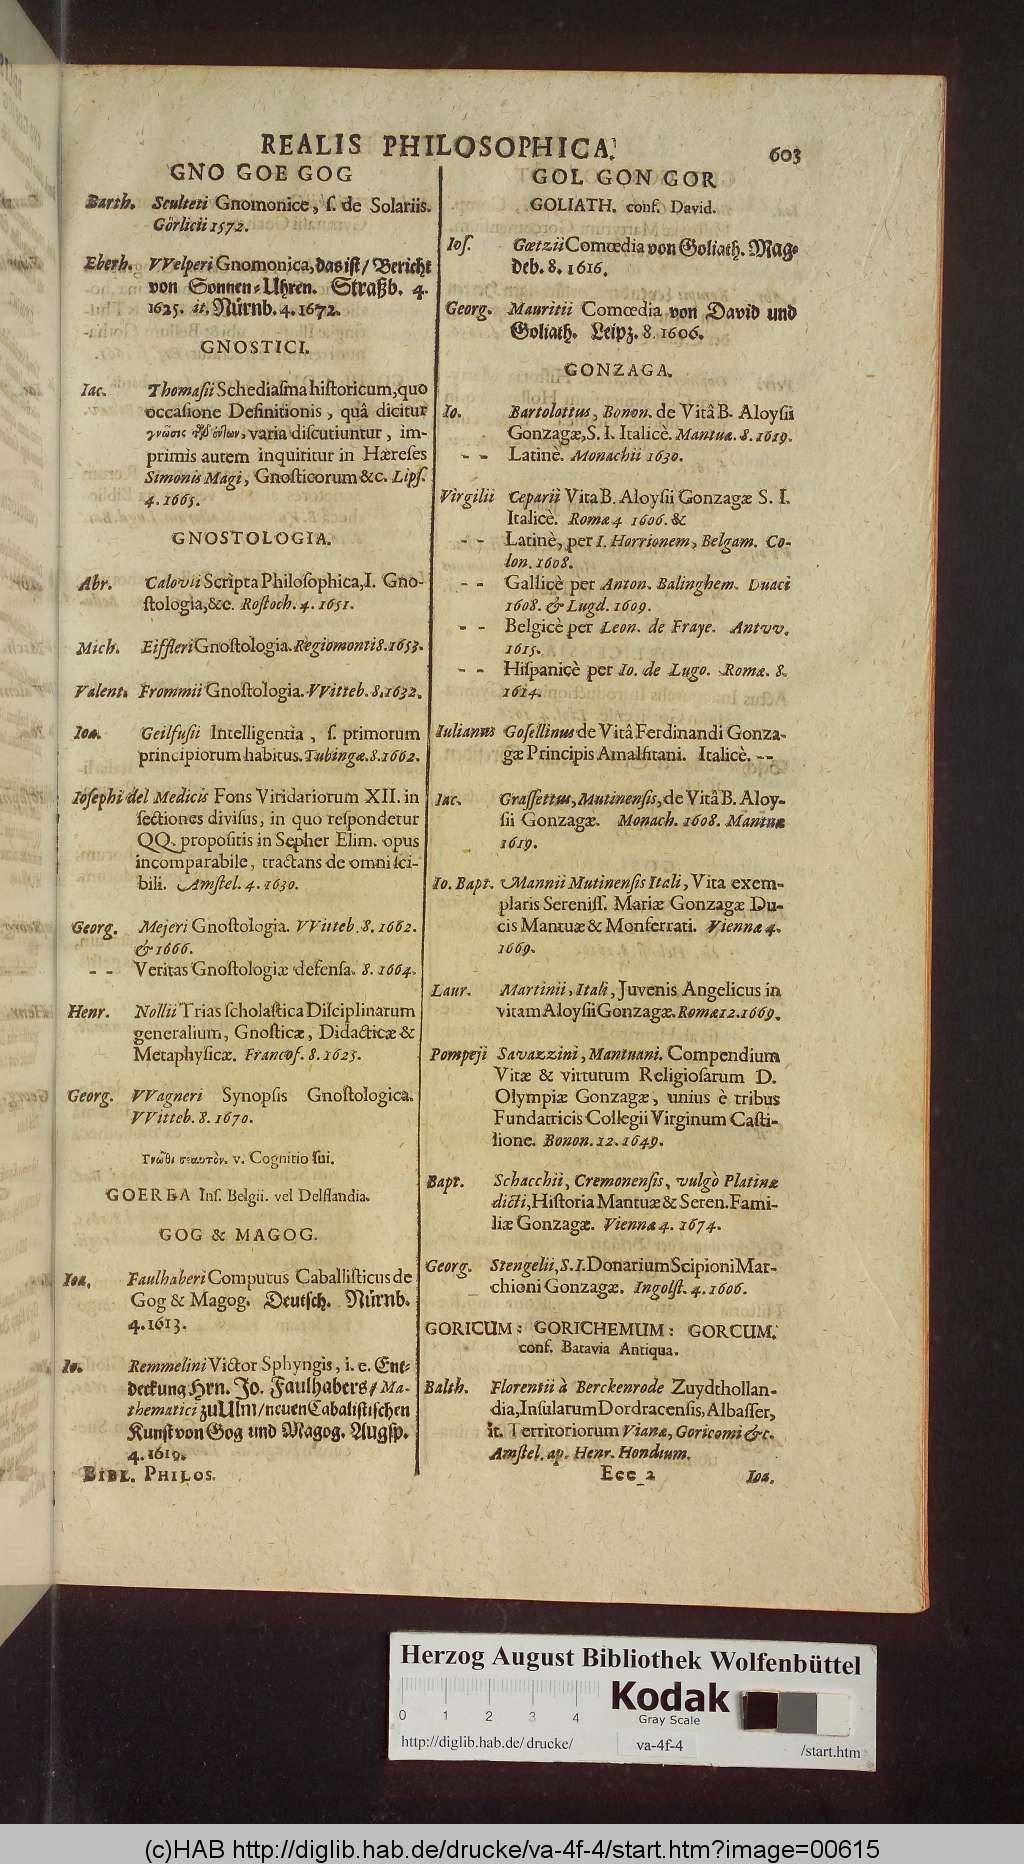 REALIS PHILOSOPHICA.
603
GNO GOE GOG
Barth. Sculteti Gnomonice, ſ. de Solariis.
Görlicii 1572.
Eberh. VVelperi Gnomonica, das iſt / Bericht
von Sonnen-Uhren. Straßb. 4.
1625. it. Nürnb. 4. 1672.
GNOSTICI.
Iac. Thomaſii Schediaſma hiſtoricum, quo
occaſione Definitionis, quâ dicitur
γνῶσις τῶν ὄντων, varia diſcutiuntur, im-
primis autem inquiritur in Hæreſes
Simonis Magi, Gnoſticorum &c. Lipſ.
4. 1665.
GNOSTOLOGIA.
Abr. Calovii Scripta Philoſophica, I. Gno-
ſtologia, &c. Roſtoch. 4. 1651.
Mich. Eiffleri Gnoſtologia. Regiomonti 8. 1653.
Valent. Frommii Gnoſtologia. VVitteb. 8. 1632.
Ioa. Geilfuſii Intelligentia, ſ. primorum
principiorum habitus. Tubingæ. 8. 1662.
Ioſephi del Medicis Fons Viridariorum XII. in
ſectiones diviſus, in quo reſpondetur
QQ. propoſitis in Sepher Elim. opus
incomparabile, tractans de omni ſci-
bili. Amſtel. 4. 1630.
Georg. Mejeri Gnoſtologia. VVitteb. 8. 1662.
& 1666.
- - Veritas Gnoſtologiæ defenſa. 8. 1664.
Henr. Nollii Trias ſcholaſtica Diſciplinarum
generalium, Gnoſticæ, Didacticæ &
Metaphyſicæ. Francof. 8. 1623.
Georg. VVagneri Synopſis Gnoſtologica.
VVitteb. 8. 1670.
Γνῶθι σεαυτόν. v. Cognitio ſui.
GOEREA Inſ. Belgii. vel Delflandia.
GOG & MAGOG.
Ioa. Faulhaberi Computus Caballiſticus de
Gog & Magog. Deutſch. Nürnb.
4. 1613.
Io. Remmelini Victor Sphyngis, i. e. Ent-
deckung Hrn. Jo. Faulhabers / Ma-
thematici zu Ulm / neuen Cabaliſtiſchen
Kunſt von Gog und Magog. Augſp.
4. 1619.
BIBL. PHILOS.
GOL GON GOR
GOLIATH. conf. David.
Ioſ. Gœtzii Comœdia von Goliath. Mag-
deb. 8. 1616.
Georg. Mauritii Comœdia von David und
Goliath. Leipz. 8. 1606.
GONZAGA.
Io. Bartolottus, Bonon. de Vitâ B. Aloyſii
Gonzagæ, S. I. Italicè. Mantuæ. 8. 1619.
- - Latinè. Monachii 1630.
Virgilii Ceparii Vita B. Aloyſii Gonzagæ S. I.
Italicè. Romæ 4 1606. &
- - Latinè, per I. Horrionem, Belgam. Co-
lon. 1608.
- - Gallicè per Anton. Balinghem. Duaci
1608. & Lugd. 1609.
- - Belgicè per Leon. de Fraye. Antvv.
1615.
- - Hiſpanicè per Io. de Lugo. Romæ. 8.
1614.
Iulianus Goſellinus de Vitâ Ferdinandi Gonza-
gæ Principis Amalfitani. Italicè. --
Iac. Graſſettus, Mutinenſis, de Vitâ B. Aloy-
ſii Gonzagæ. Monach. 1608. Mantuæ
1619.
Io. Bapt. Mannii Mutinenſis Itali, Vita exem-
plaris Sereniſſ. Mariæ Gonzagæ Du-
cis Mantuæ & Monferrati. Viennæ 4.
1669.
Laur. Martinii, Itali, Juvenis Angelicus in
vitam Aloyſii Gonzagæ. Romæ 12. 1669.
Pompeji Savazzini, Mantuani. Compendium
Vitæ & virtutum Religioſarum D.
Olympiæ Gonzagæ, unius è tribus
Fundatricis Collegii Virginum Caſti-
lione. Bonon. 12. 1649.
Bapt. Schacchii, Cremonenſis, vulgò Platinæ
dicti, Hiſtoria Mantuæ & Seren. Fami-
liæ Gonzagæ. Viennæ 4. 1674.
Georg. Stengelii, S. I. Donarium Scipioni Mar-
chioni Gonzagæ. Ingolſt. 4. 1606.
GORICUM: GORICHEMUM: GORCUM.
conf. Batavia Antiqua.
Balth. Florentii à Berckenrode Zuydthollan-
dia, Inſulatum Dordracenſis, Albaſſer,
it. Territoriorum Vianæ, Goricomi &c.
Amſtel. ap. Henr. Hondium.
Eee 2 Ioa.
Herzog August Bibliothek Wolfenbüttel
0 1 2 3 4
Kodak
Gray Scale
http://diglib.hab.de/drucke/ va-4f-4 /start.htm
(c)HAB http://diglib.hab.de/drucke/va-4f-4/start.htm?image=00615